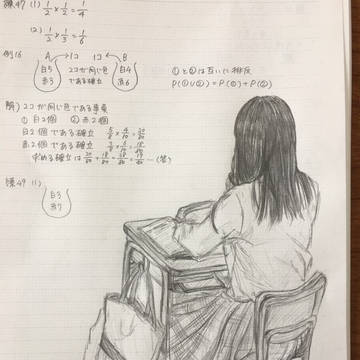 練47 (1) 1/2 × 1/2 = 1/4
(2) 1/2 × 1/3 = 1/6
例16 A →1コ 1コ← B
白5 2コが同じ色 白4
赤3 である確立 赤6
①と②は互いに排反
P(①∪②) = P(①) + P(②)
解) 2コが同じ色である事象
① 白2個 ② 赤2個
白2個である確立 5/8 × 4/10 = 20/80
赤2個である確立 3/8 × 6/10 = 18/80
求める確立は 20/80 + 18/80 = 38/80 = 19/40 …(答)
練49 (1)
白3
赤7